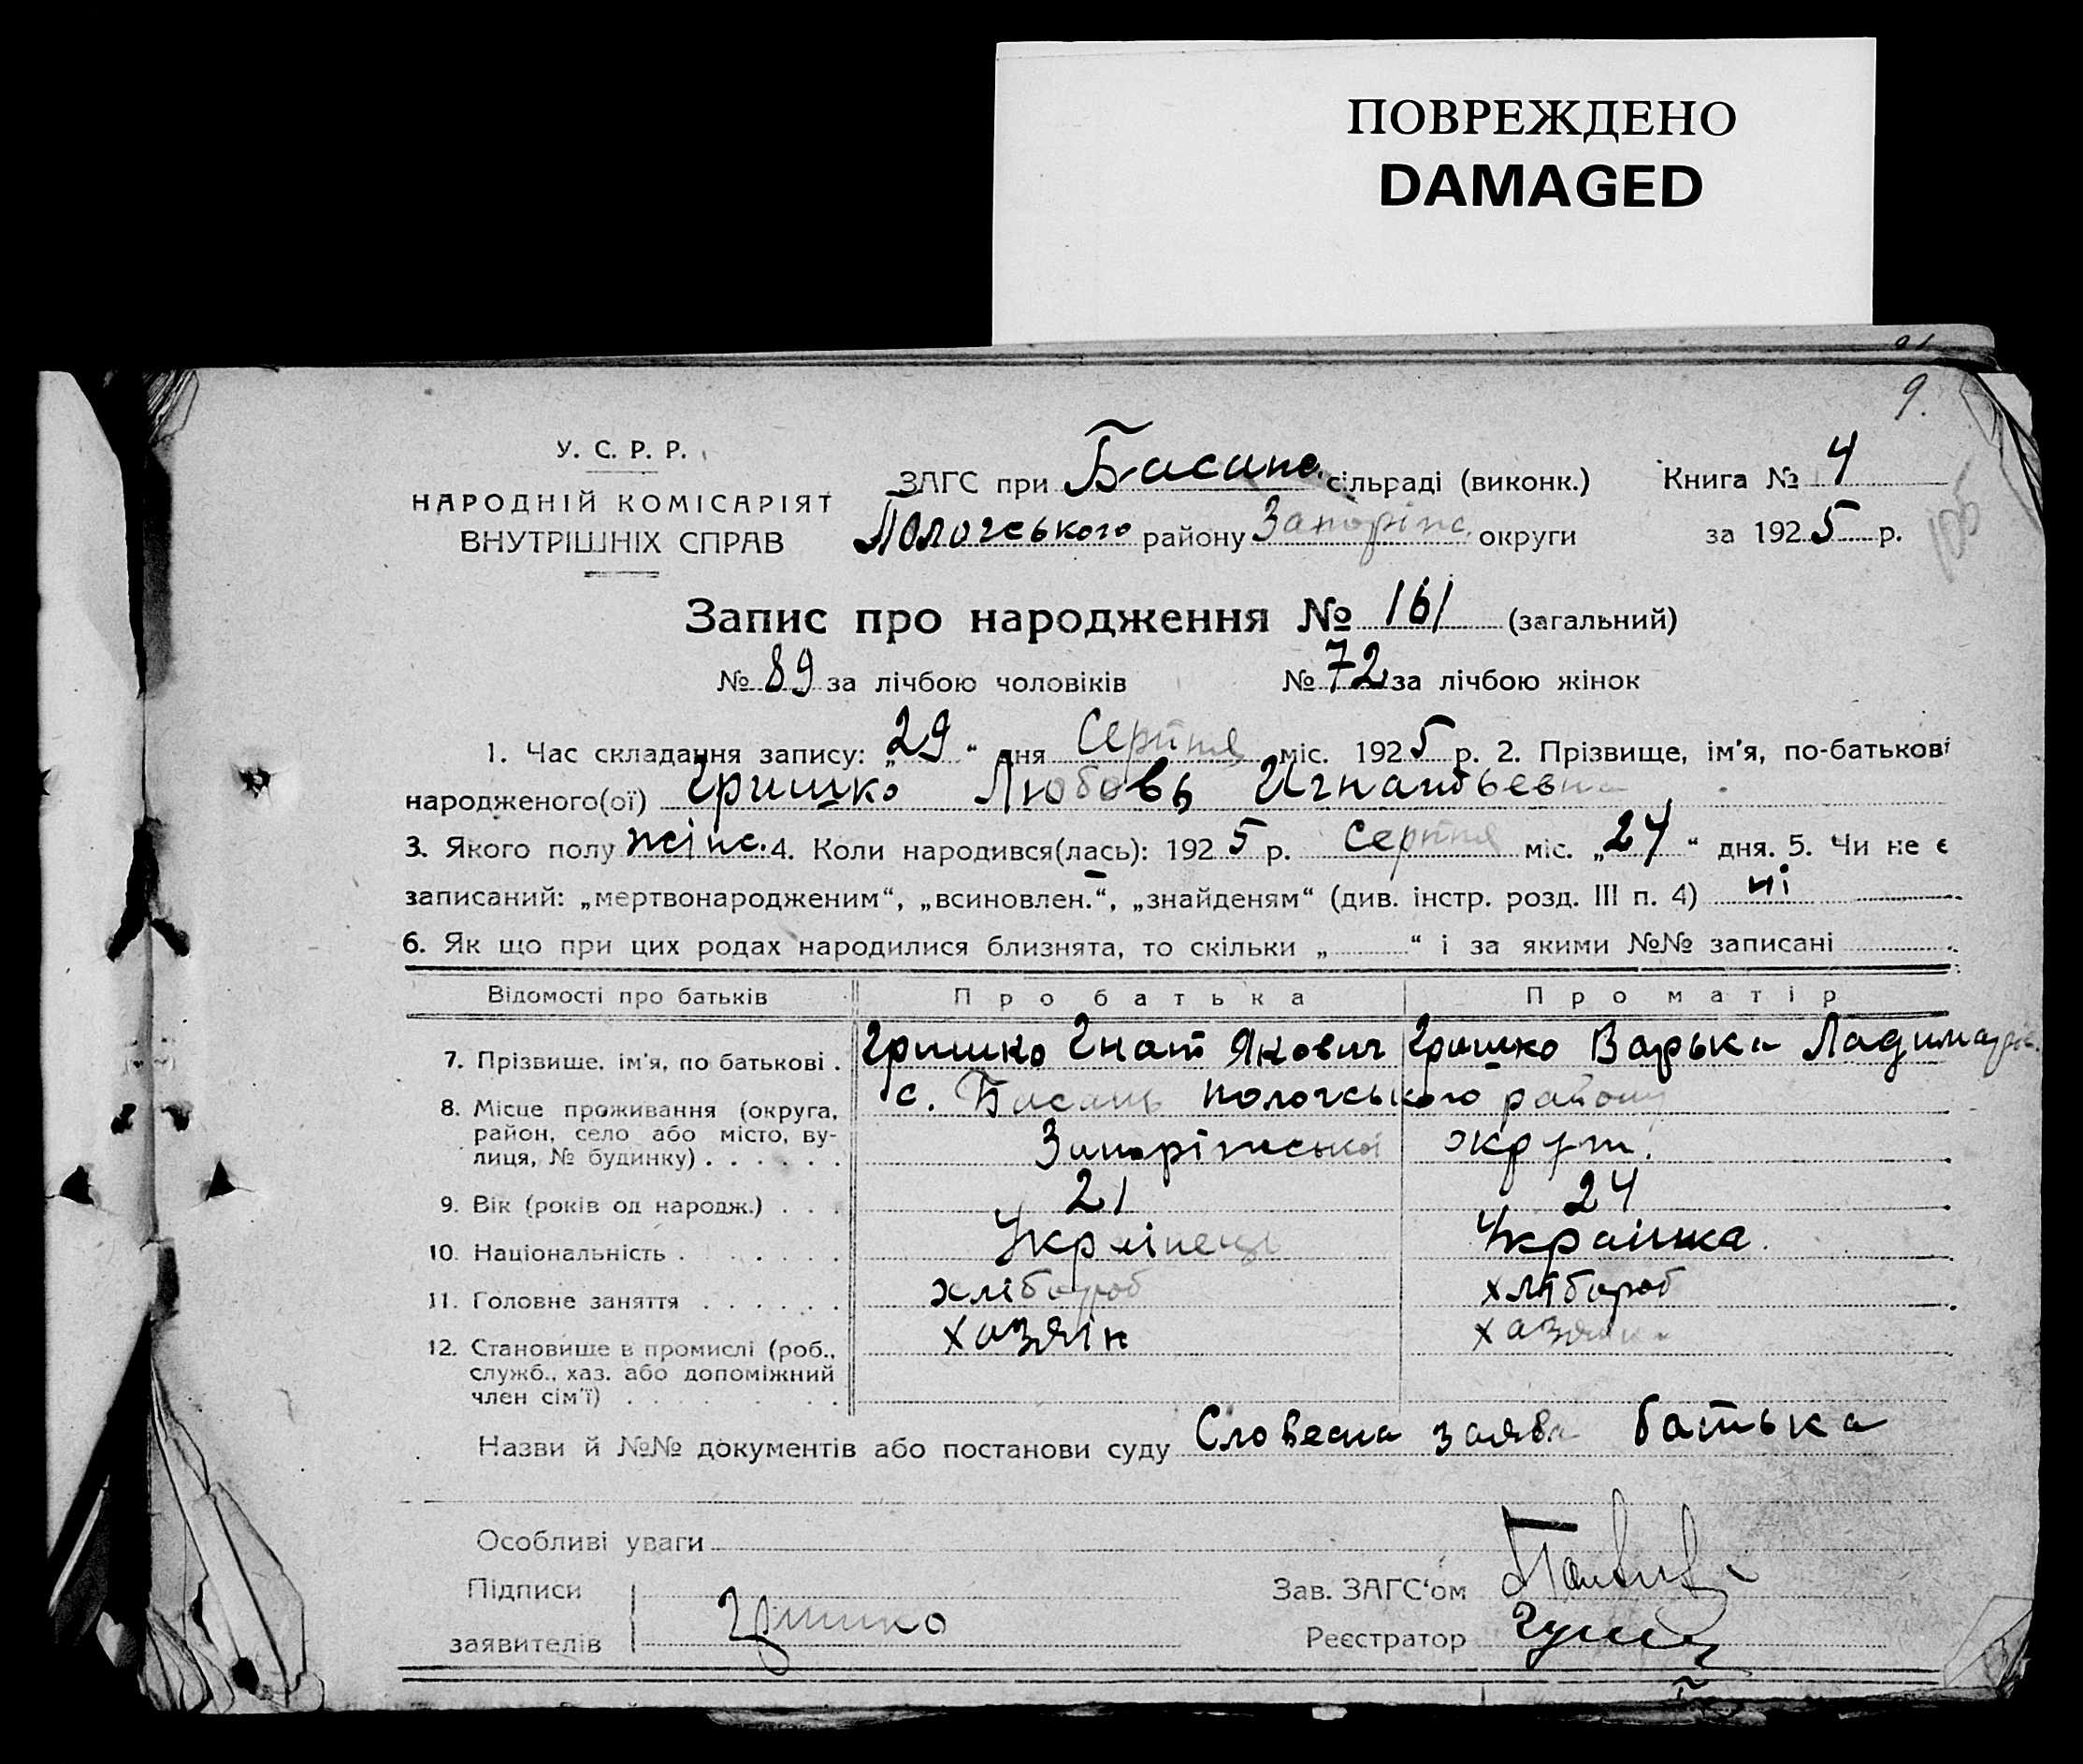 ПОВРЕЖДЕНО
DAMAGED
9.
105
У. С. Р. Р.
НАРОДНІЙ КОМІСАРІЯТ
ВНУТРІШНІХ СПРАВ
ЗАГС при Басанс. сільраді (виконк.) Книга № 4
Пологського району Запоріжс. округи за 1925 р.
Запис про народження № 161 (загальний)
№ 89 за лічбою чоловіків № 72 за лічбою жінок
1. Час складання запису: „29“ дня Серпня міс. 1925 р. 2. Прізвище, ім'я, по-батькові
народженого(ої) Гришко Любовь Игнатьевна
3. Якого полу жінс. 4. Коли народився(лась): 1925 р. Серпня міс. „24“ дня. 5. Чи не є
записаний: „мертвонародженим“, „всиновлен.“, „знайденям“ (див. інстр. розд. III п. 4) ні
6. Як що при цих родах народилися близнята, то скільки „ “ і за якими №№ записані
Відомості про батьків Про батька Про матір
7. Прізвище, ім'я, по батькові . Гришко Гнат Якович Гришко Варька Ладимарів.
8. Місце проживання (округа, с. Басань Пологського району
район, село або місто, ву-
лиця, № будинку) . . . . . . Запоріжської округи.
9. Вік (років од народж.) . . . 21 24
10. Національність . . . . Українець Українка.
11. Головне заняття . . . . . . хлібороб хлібороб
12. Становище в промислі (роб., хазяїн хазяйка
служб., хаз. або допоміжний
член сім'ї) . . . . . .
Назви й №№ документів або постанови суду Словесна заява батька
Особливі уваги
Підписи Зав. ЗАГС'ом
заявителів Гришко Реєстратор